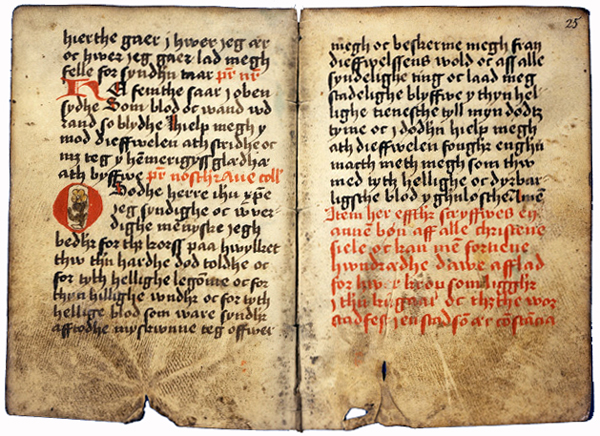 hierthe gaer i hwer jeg ær
oc hwer jeg gaer lad megh
felle for syndhn taar pr nr
femthe saar i oben
sydhe Som blod oc wand wd
rand so blydhe hielp megh y
mod dieffwelen ath stridhe oc
mz teg y hemerigyss glædhæ
ath byffwe pr noster Aue coll
Sodhe herre ihu xpe
jeg syndighe oc wver
dighe menyske jegh
bedhr for thz korss paa hwylket
thw thn hardhe død toldhe oc
for tyth hellighe legome oc for
thyn hillighe wndhr oc for tyth
hellige blod som ware syndhr
afftodhe myskwnne teg offwer
25
megh oc beskerme megh fran
dieffwelssens wold oc aff alle
syndelighe ting oc laad meg
stadelighe blyffwe y thyn hel
lighe tienesthe tyll myn dødtz
tyme oc i dødhn hielp megh
ath dieffwelen foughr enghn
macth meth megh som thw
med tyth hellighe oc dyrbar
ligsthe blod y Amen
Item her effthr scryffwes en
annen bøn aff alle christene
siele oc kan men
hwndrædhe dawe afflad
for hwer krop som ligghr
i thn kirgaar oc thrthe wor
stadfest i en stad som ær constancia